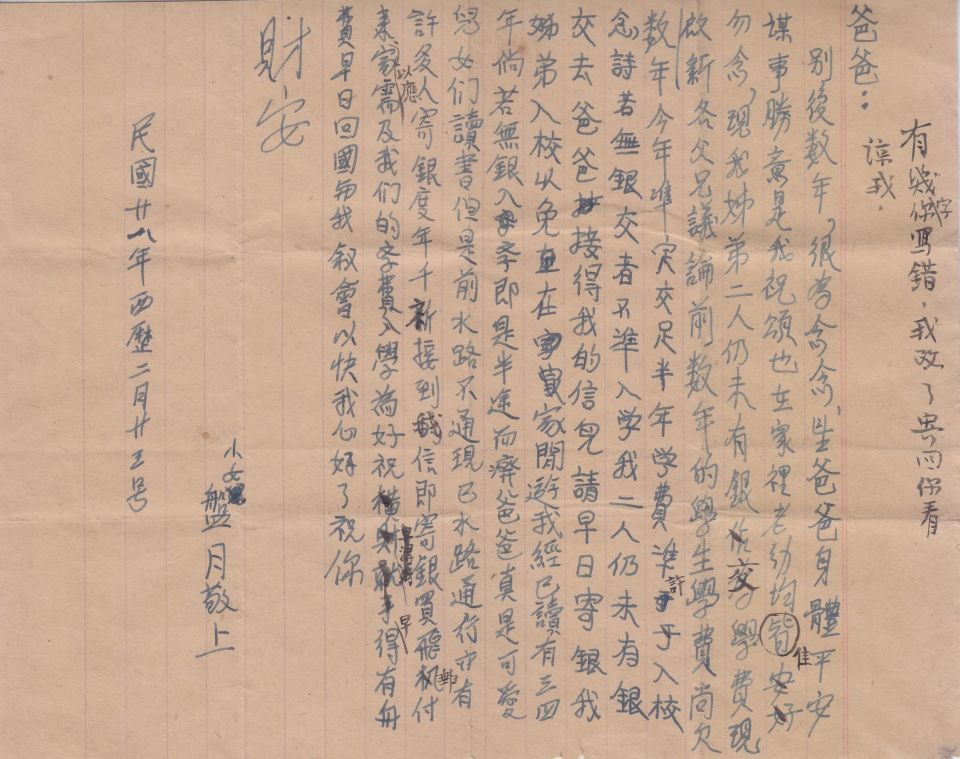 有幾
你
字
寫錯,我改了
你看
諒我.
爸爸:
別後数年,很為念念,並爸爸身體平安
謀事勝意是我祝頌也在家裡老幼均皆安好
佳
勿念,現我姊弟二人仍未有銀交學費現
啟新各父兄議論前数年的學生學費尚欠
数年今年準实交足半年学費准許于入校
念詩若無銀交者不準入学我二人仍未有銀
交去爸爸接得我的信兒請早日寄銀我
姊弟入校以免在家閒遊我經已讀有三四
年倘若無銀入学即是半途而廢爸爸真是可愛
兒女们讀書但是前水路不通現已水路通行亦有
許多人寄銀度年千新接到我信即寄銀買飛机付
郵
來家以應需及我们的学費入學為好祝橫財就手得有舟
早
費早日回國与我叙會以快我心好了祝你
財安
小女
盤月敬上
民國廿八年西歷二月廿三号